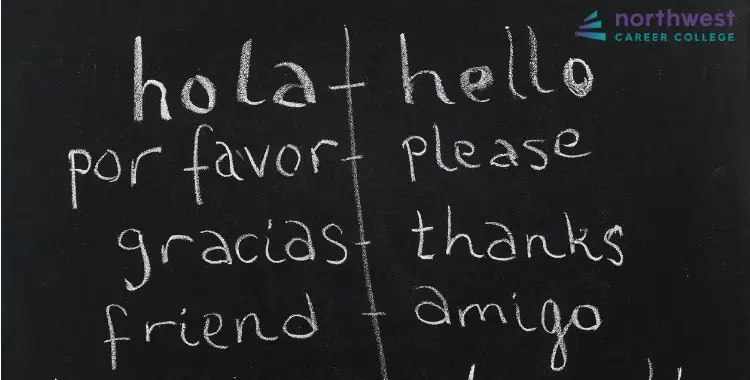 northwest
CAREER COLLEGE
hola - hello
por favor - please
gracias - thanks
friend - amigo